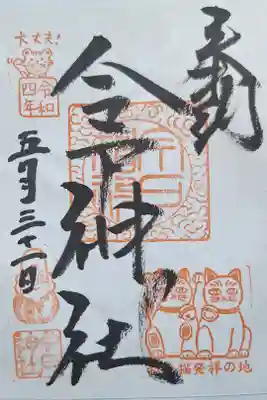 奉拝
今戸神社
大丈夫!
令和
四年
五月三十一日
猫発祥の地